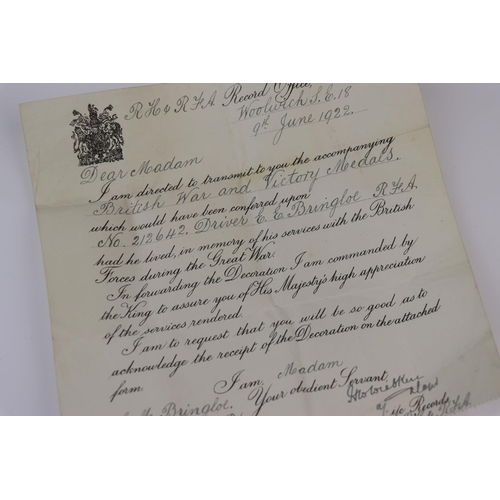 R H & R F A Record Office,
Woolwich S.E. 18
9th June 1922.
Dear Madam
I am directed to transmit to you the accompanying
British War and Victory Medals.
which would have been conferred upon
No. 212642. Driver E. E Bringloe R.F.A.
had he lived, in memory of his services with the British
Forces during the Great War.
In forwarding the Decoration I am commanded by
the King to assure you of His Majesty's high appreciation
of the services rendered.
I am to request that you will be so good as to
acknowledge the receipt of the Decoration on the attached
form.
I am, Madam
Your obedient Servant,
Bringloe.
Records